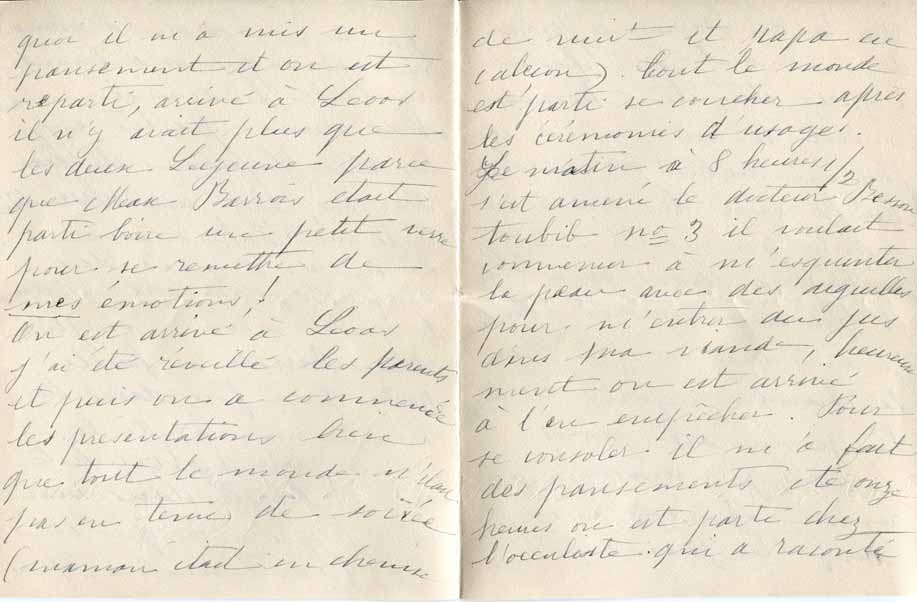 quoi il m'a mis un
pansement et on est
reparti, arrivé à Lecos
il n'y avait plus que
les deux Lejeune parce
que Max Barrois était
parti boire un petit verre
pour se remettre de
mes émotions!
On est arrivé à Lecos
j'ai été réveillé les parents
et puis on a commencé
les présentations bien
que tout le monde n'était
pas en tenue de soirée
(maman était en chemise
de nuit et papa en
caleçon). Tout le monde
est parti se coucher après
les cérémonies d'usages.
Le matin à 8 heures 1/2
s'est amené le docteur Besson
toubib no 3 il voulait
commencer à m'esquinter
la peau avec des aiguilles
pour m'entrer du jus
dans ma viande, heureuse
ment on est arrivé
à l'en empêcher. Pour
se consoler il m'a fait
des pansements et à onze
heures on est parti chez
l'occuliste qui a raconté